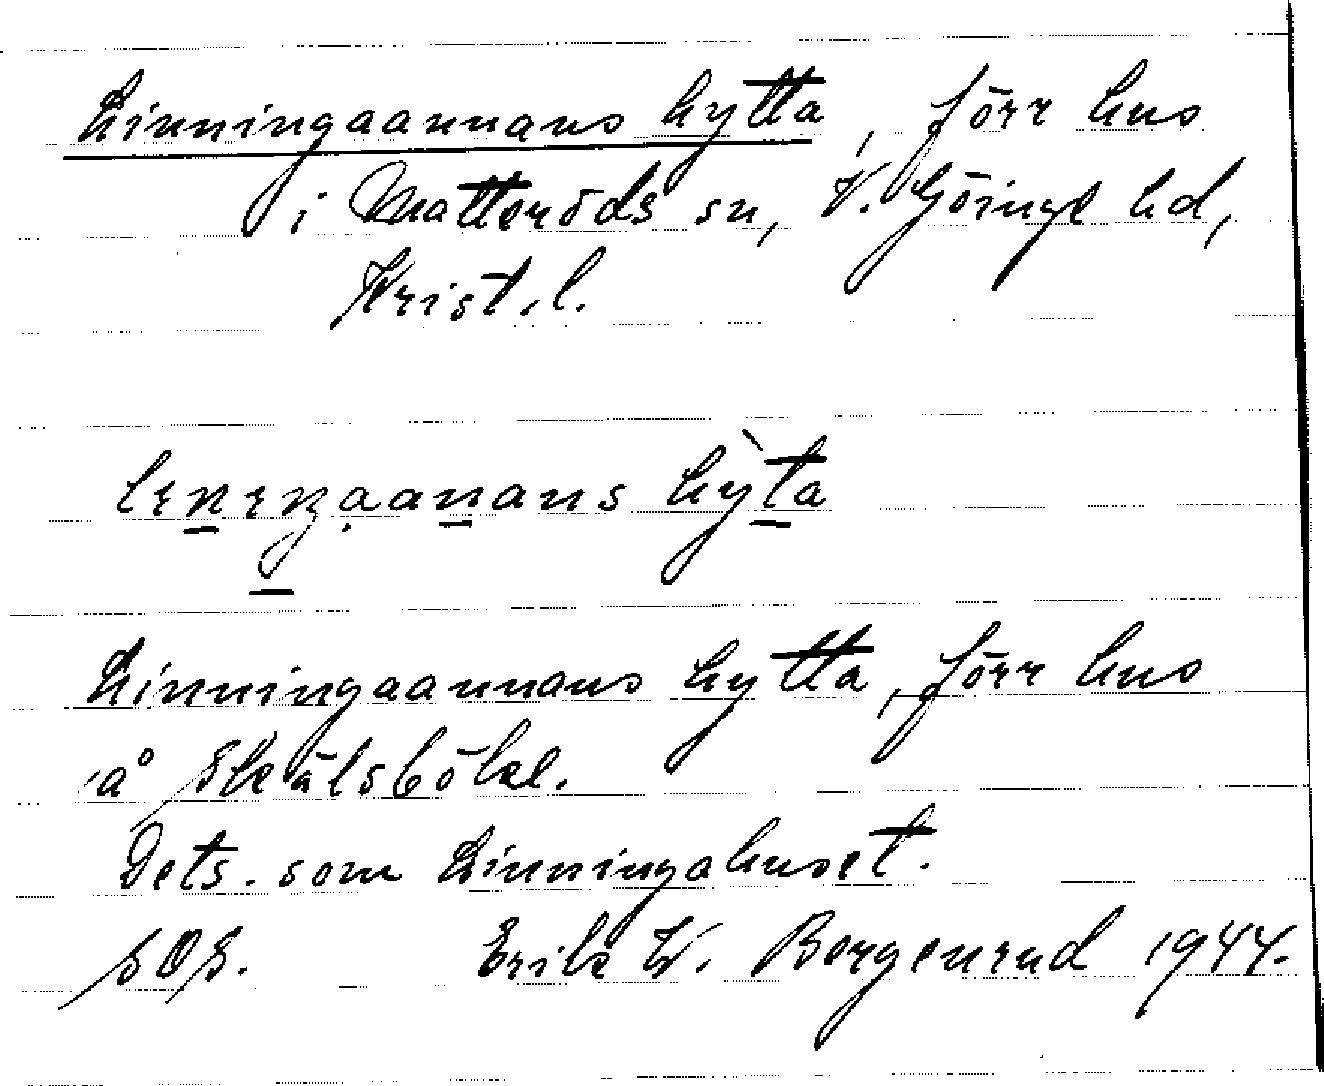 Linningaannans hytta, förr hus
i Matteröds sn, V. Göinge hd,
Krist. l.
hỳta
Linningaannans hytta, förr hus
å Skälsböke.
Dets. som Linningahuset.
SOS. Erik W. Borgenrud 1944.